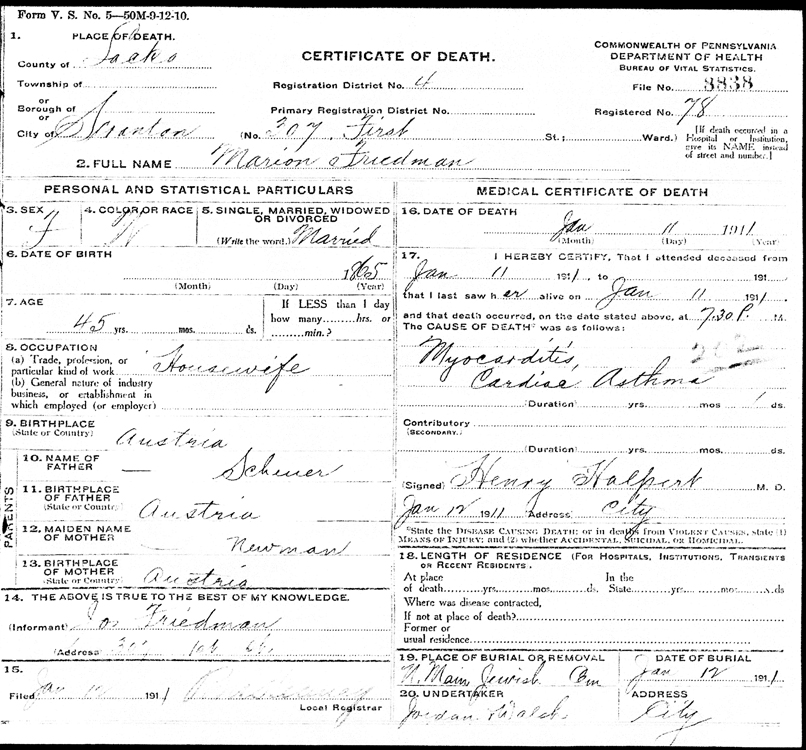 Form V. S. No. 5—50M-9-12-10.
1. PLACE OF DEATH.
County of Lacka
Township of
or
Borough of
or
City of Scranton
CERTIFICATE OF DEATH.
Registration District No. 4
Primary Registration District No.
(No. 307 First St.; Ward.)
COMMONWEALTH OF PENNSYLVANIA
DEPARTMENT OF HEALTH
BUREAU OF VITAL STATISTICS.
File No. 3838
Registered No. 78
[If death occurred in a
Hospital or Institution,
give its NAME instead
of street and number.]
2. FULL NAME Marion Friedman
PERSONAL AND STATISTICAL PARTICULARS
3. SEX
F
4. COLOR OR RACE
W
5. SINGLE, MARRIED, WIDOWED
OR DIVORCED
(Write the word.) Married
6. DATE OF BIRTH
1865
(Month) (Day) (Year)
7. AGE
45 yrs. mos. ds.
If LESS than 1 day
how many hrs. or
min.?
8. OCCUPATION
(a) Trade, profession, or
particular kind of work Housewife
(b) General nature of industry
business, or establishment in
which employed (or employer)
9. BIRTHPLACE
(State or Country) Austria
PARENTS
10. NAME OF
FATHER — Scheuer
11. BIRTHPLACE
OF FATHER
(State or Country) Austria
12. MAIDEN NAME
OF MOTHER Newman
13. BIRTHPLACE
OF MOTHER
(State or Country) Austria
14. THE ABOVE IS TRUE TO THE BEST OF MY KNOWLEDGE.
(Informant) Jos Friedman
(Address
15.
Filed Jan 12 1911
Local Registrar
MEDICAL CERTIFICATE OF DEATH
16. DATE OF DEATH
Jan 11 1911
(Month) (Day) (Year)
17. I HEREBY CERTIFY, That I attended deceased from
Jan 11 1911, to 191
that I last saw her alive on Jan 11 1911
and that death occurred, on the date stated above, at 7.30 P. M.
The CAUSE OF DEATH* was as follows:
Myocarditis,
Cardiac Asthma
(Duration) yrs. mos 1 ds.
Contributory
(SECONDARY.)
(Duration) yrs. mos. ds.
(Signed) Henry Halpert M. D.
Jan 12 1911 (Address) City
*State the DISEASE CAUSING DEATH; or in deaths from VIOLENT CAUSES, state (1)
MEANS OF INJURY; and (2) whether ACCIDENTAL, SUICIDAL, or HOMICIDAL.
18. LENGTH OF RESIDENCE (FOR HOSPITALS, INSTITUTIONS, TRANSIENTS
OR RECENT RESIDENTS.
At place In the
of death yrs. mos. ds. State yrs. mos. ds
Where was disease contracted,
If not at place of death?
Former or
usual residence
19. PLACE OF BURIAL OR REMOVAL
N. Main Jewish Cem
DATE OF BURIAL
Jan 12 1911
20. UNDERTAKER
Jordan
ADDRESS
City